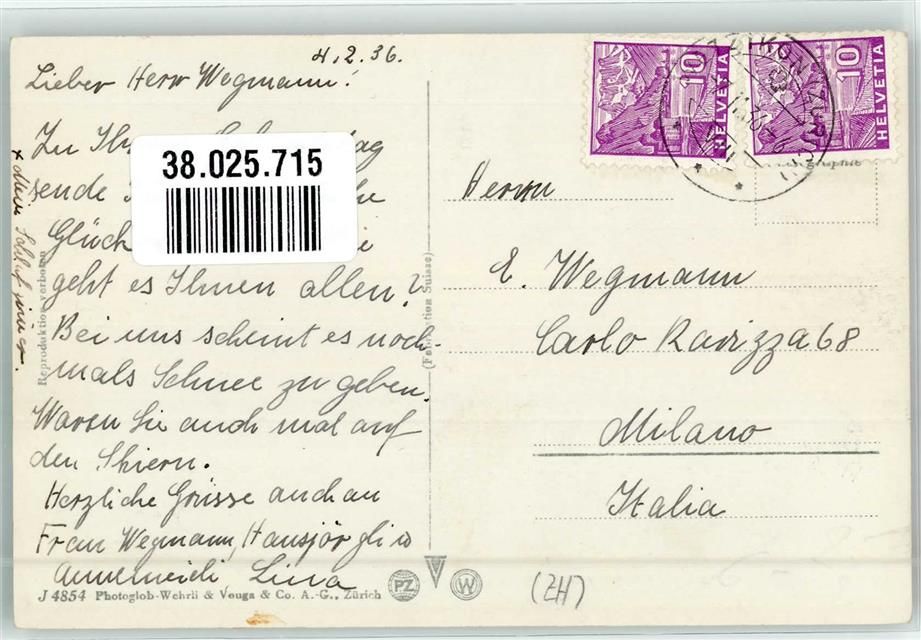 4.2.36.
Lieber Herr Wegmann!
Zu
sende
Glück
geht es Ihnen allen?
Bei uns scheint es noch-
mals Schnee zu geben.
Waren Sie auch mal auf
den Skiern.
Herzliche Grüsse auch an
Frau Wegmann, Hansjörgli u
Annemeili, Lina
38.025.715
Reproduktion verboten
(Fabrication Suisse)
J 4854 Photoglob-Wehrli & Vouga & Co. A.-G., Zürich
PZ
W
10
HELVETIA
10
HELVETIA
Herrn
E. Wegmann
Carlo Ravizza 68
Milano
Italia
(ZH)